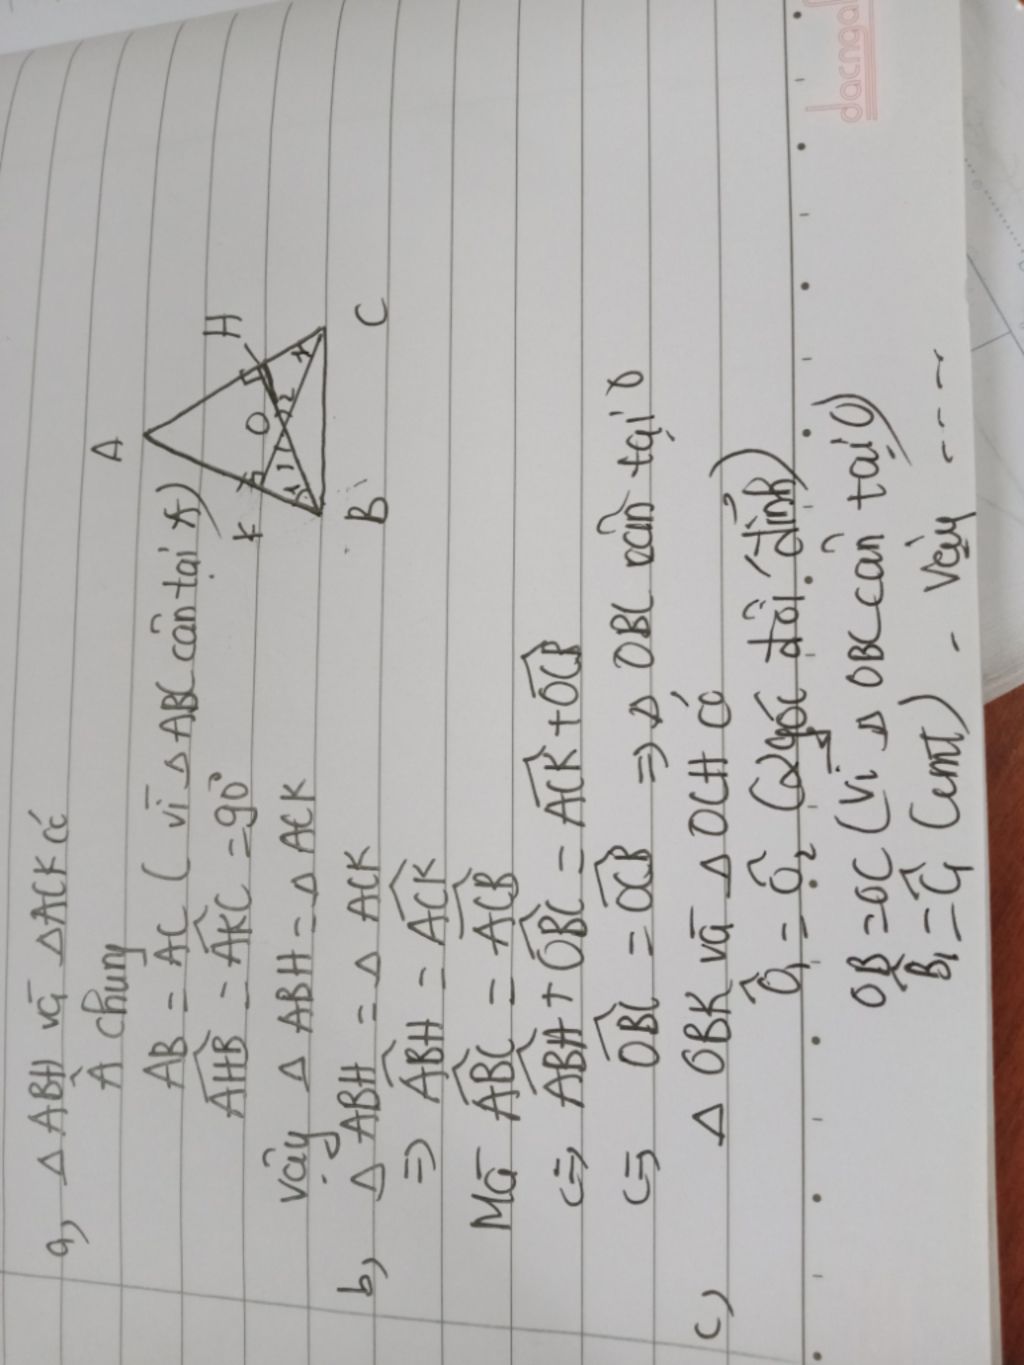 a, Δ ABH và Δ ACK có
Â chung
AB = AC ( vì Δ ABC cân tại A)
AHB = AKC = 90°
vậy Δ ABH = Δ ACK
A
H
K
O
1
1
2
1
B
C
b, Δ ABH = Δ ACK
=> ABH = ACK
Mà ABC = ACB
<=> ABH + OBC = ACK + OCB
<=> OBC = OCB => Δ OBC cân tại O
c, Δ OBK và Δ OCH có
Ô1 = Ô2 (2 góc đối đỉnh)
OB = OC (vì Δ OBC cân tại O)
B1 = C1 (cmt) - Vậy ----
dacnga